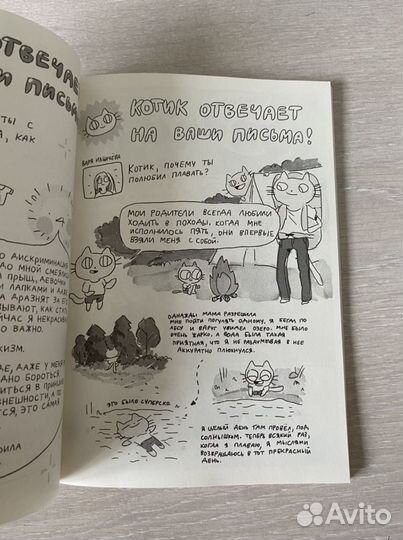 ОТВЕЧАЕТ
И ПИСЬМА
ТЫ С
А, КАК
О ДИСКРИМИНАЦИ
АО МНОЙ СМЕЯЛИ
ПРЫЩ, ДЕВОЧКИ
ЛАПКАМИ И
А ДРАЗНЯТ ЗА
ЫВАЮТ, КАК СТИЛЬ
ЙЧАС Я НЕКРАСИВ
О ВАЖНО.
КИЗМ.
ДЕ, ДАЖЕ У МЕНЯ
АНО БОРОТЬСЯ.
ИТЬСЯ В ПРИНЦИ
ВНЕШНОСТИ, А ПО
ТСЯ, ЭТО САМАЯ
ОИЛА
КОТИК ОТВЕЧАЕТ
НА ВАШИ ПИСЬМА!
ВАРЯ
КОТИК, ПОЧЕМУ ТЫ
ПОЛЮБИЛ ПЛАВАТЬ?
МОИ РОДИТЕЛИ ВСЕГДА ЛЮБИЛИ
ХОДИТЬ В ПОХОДЫ. КОГДА МНЕ
ИСПОЛНИЛОСЬ ПЯТЬ, ОНИ ВПЕРВЫЕ
ВЗЯЛИ МЕНЯ С СОБОЙ.
ОДНАЖДЫ МАМА РАЗРЕШИЛА
МНЕ ПОЙТИ ПОГУЛЯТЬ ОДНОМУ. Я БЕГАЛ ПО
ЛЕСУ И ВДРУГ УВИДЕЛ ОЗЕРО. МНЕ БЫЛО
ОЧЕНЬ ЖАРКО, А ВОДА БЫЛА ТАКАЯ
ПРИЯТНАЯ, ЧТО Я НЕ РАЗДУМЫВАЯ В НЕЕ
АККУРАТНО ПЛЮХНУЛСЯ.
ЭТО БЫЛО СУПЕРСКИ.
Я ЦЕЛЫЙ ДЕНЬ ТАМ ПРОВЁЛ, ПОД
СОЛНЫШКОМ. ТЕПЕРЬ ВСЯКИЙ РАЗ,
КОГДА Я ПЛАВАЮ, Я МЫСЛЯМИ
ВОЗВРАЩАЮСЬ В ТОТ ПРЕКРАСНЫЙ
ДЕНЬ.
Avito